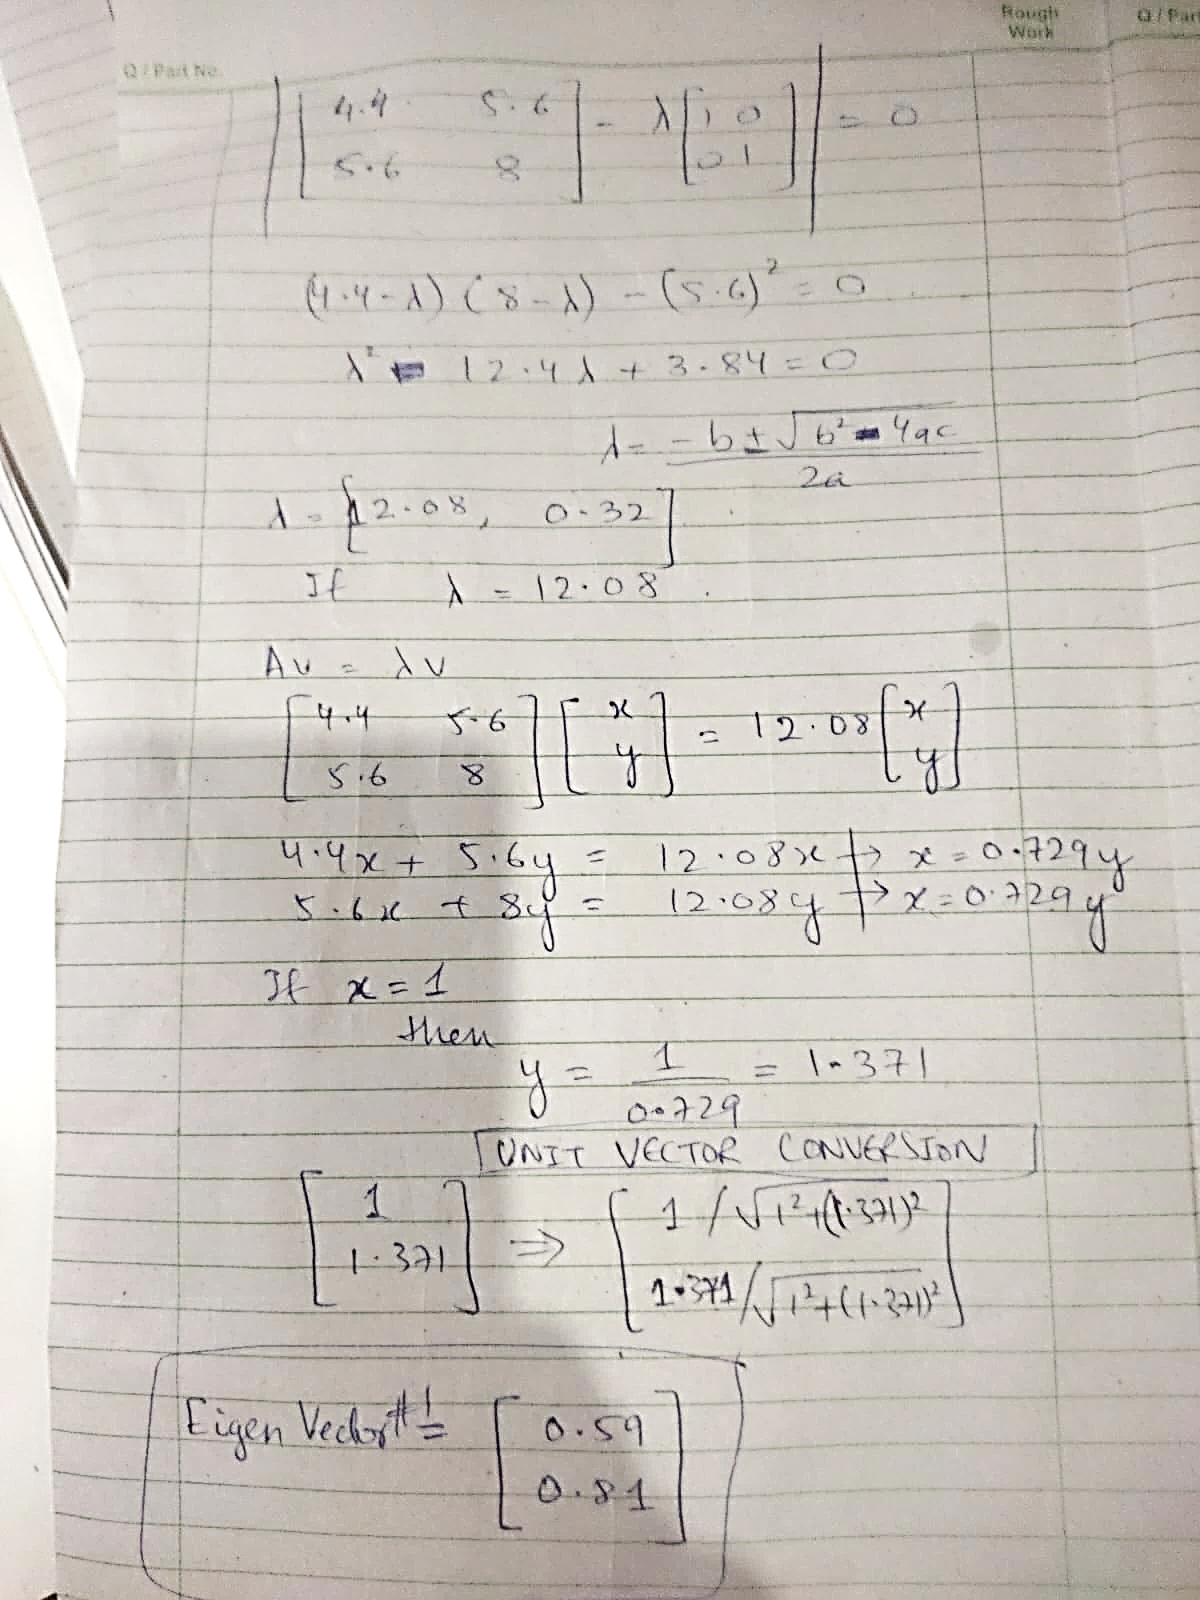 Rough Work
Q / Par
Q / Part No.
| [ 4.4 5.6 ; 5.6 8 ] - λ [ 1 0 ; 0 1 ] | = 0
(4.4-λ) (8-λ) - (5.6)² = 0
λ² - 12.4λ + 3.84 = 0
λ = -b ± √b² - 4ac / 2a
λ = [12.08, 0.32]
If λ = 12.08.
Av = λv
[ 4.4 5.6 ; 5.6 8 ] [ x ; y ] = 12.08 [ x ; y ]
4.4x + 5.6y = 12.08x → x = 0.729y
5.6x + 8y = 12.08y → x = 0.729y
If x = 1
then
y = 1 / 0.729 = 1.371
UNIT VECTOR CONVERSION
[ 1 ; 1.371 ] ⇒ [ 1 / √1²+(1.371)² ; 1.371 / √1²+(1.371)² ]
Eigen Vector # 1 = [ 0.59 ; 0.81 ]